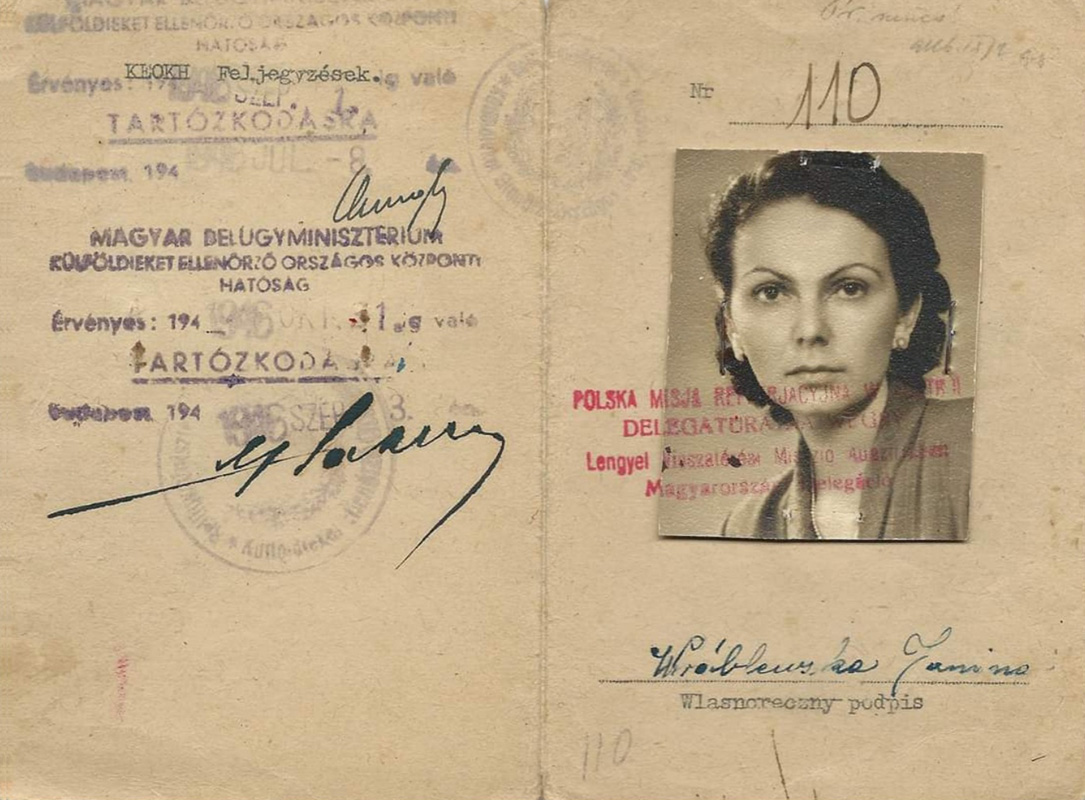 KÜLFÖLDIEKET ELLENŐRZŐ ORSZÁGOS KÖZPONTI
HATÓSÁG
KEOKH Feljegyzések.
Érvényes: 194 1946 SZEP. 1. ig való
TARTÓZKODÁSRA
Budapest, 194 1946 JUL -8
MAGYAR BELÜGYMINISZTÉRIUM
KÜLFÖLDIEKET ELLENŐRZŐ ORSZÁGOS KÖZPONTI
HATÓSÁG
Érvényes: 194 1946 OKT 31. ig való
TARTÓZKODÁSRA
Budapest, 194 1946 SZEP 3.
Nr 110
POLSKA MISJA REPATRJACYJNA W
DELEGATURA NA WĘGRY
Lengyel Visszatérési Misszió
Magyarországi Delegáció
Wróblewska Janina
Wlasnoreczny podpis
110